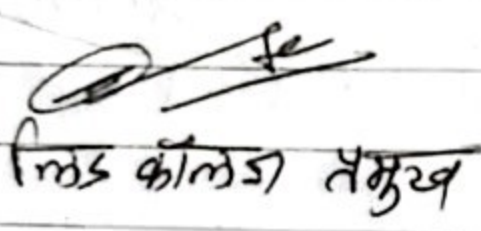 लिड कॉलेज प्रमुख